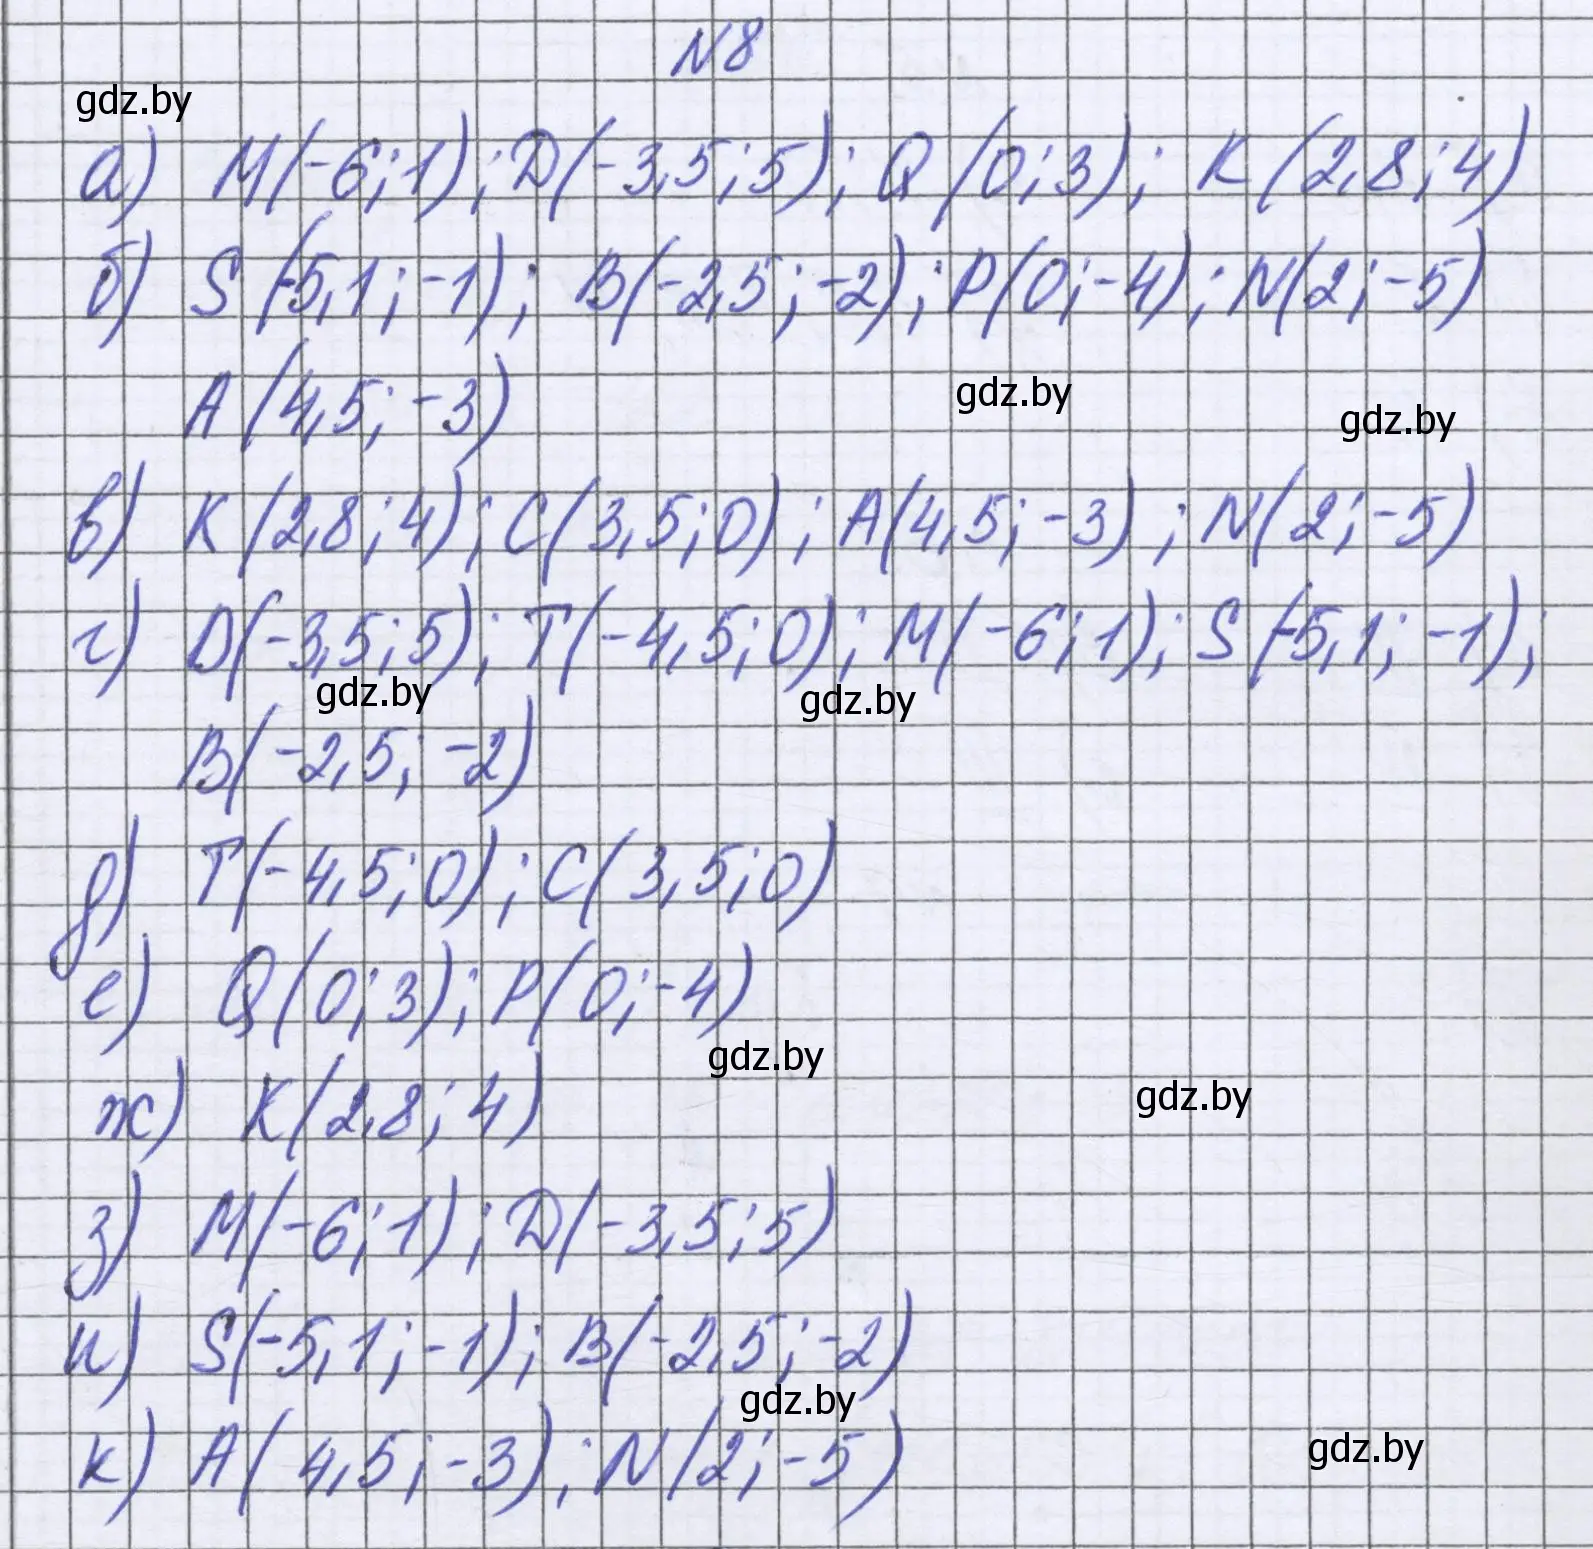 N8
gdz.by
а) M(-6;1); D(-3,5;5); Q(0;3); K(2,8;4)
б) S(-5,1;-1); B(-2,5;-2); P(0;-4); N(2;-5)
A(4,5;-3)
gdz.by
gdz.by
в) K(2,8;4); C(3,5;0); A(4,5;-3); N(2;-5)
г) D(-3,5;5); T(-4,5;0); M(-6;1); S(-5,1;-1);
gdz.by
gdz.by
B(-2,5;-2)
д) T(-4,5;0); C(3,5;0)
е) Q(0;3); P(0;-4)
gdz.by
gdz.by
ж) K(2,8;4)
з) M(-6;1); D(-3,5;5)
и) S(-5,1;-1); B(-2,5;-2)
gdz.by
gdz.by
к) A(4,5;-3); N(2;-5)